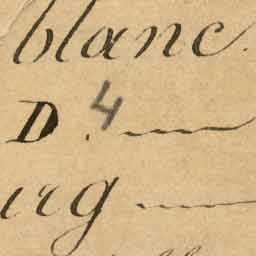 blanc.
D. 4 —
irg —